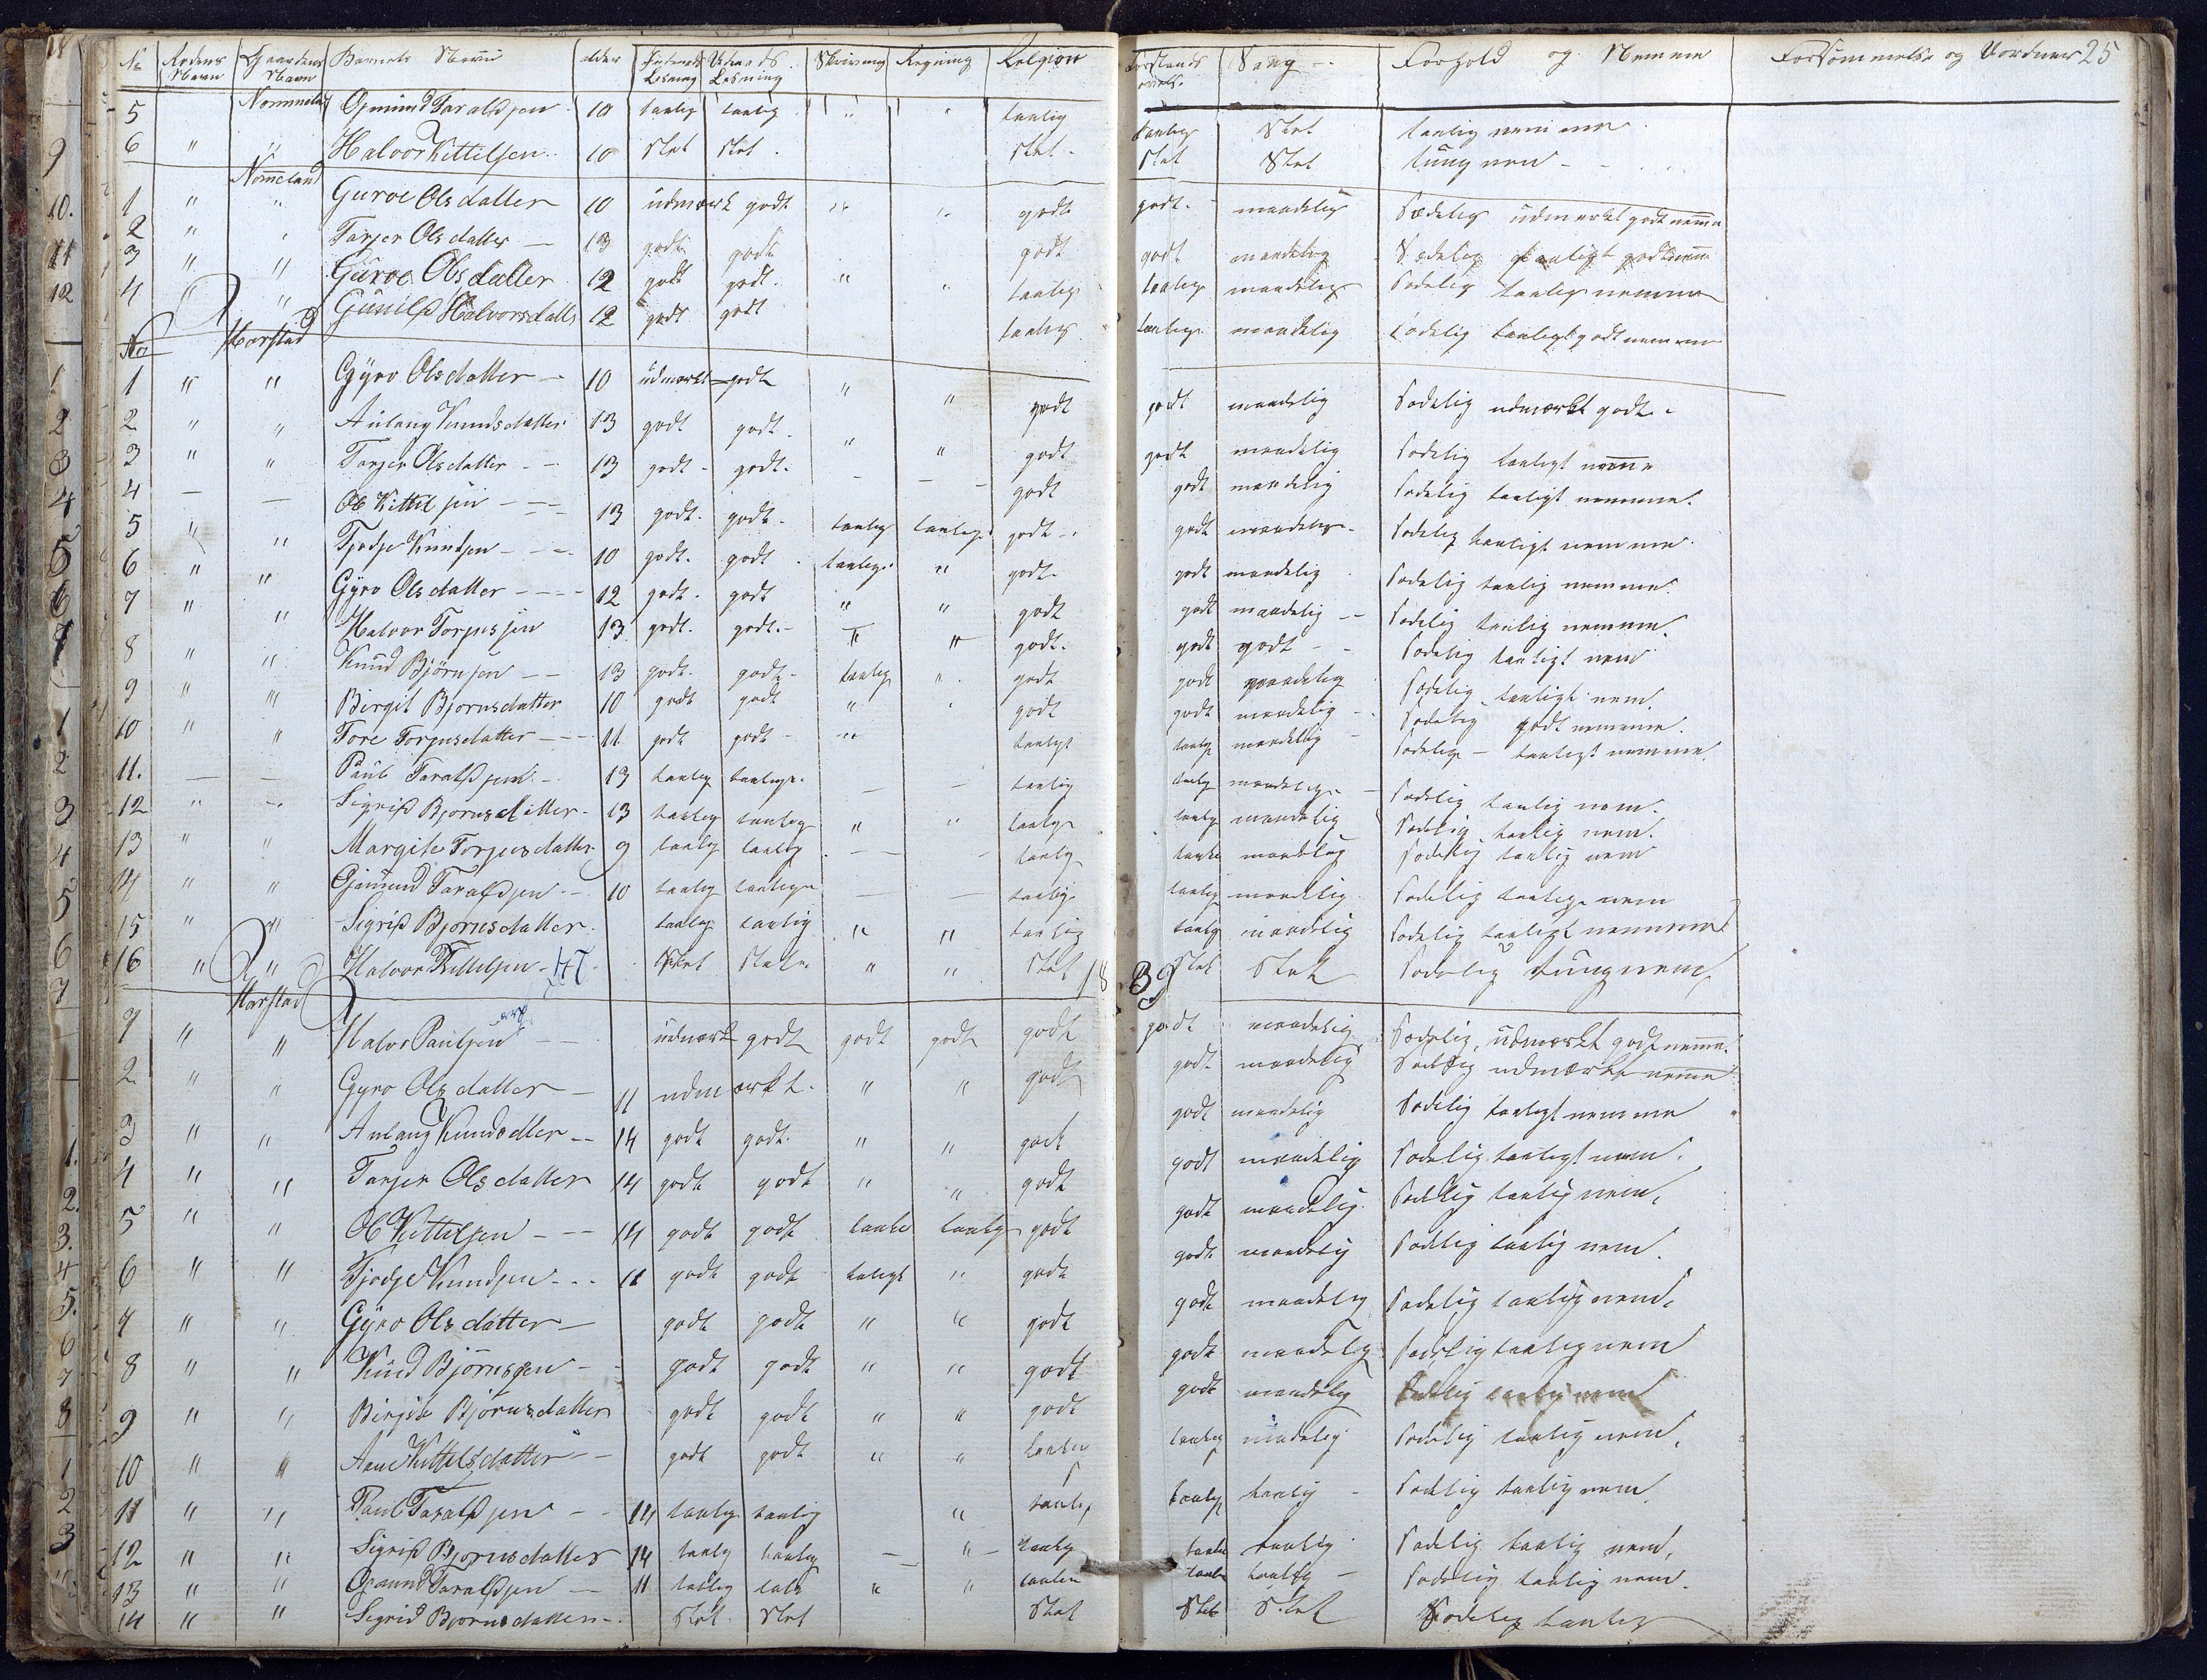 No Rodens Navn Gaardens Navn Barnets Navn alder Indenads Lesning Udenads Lesning Skrivning Regning Religion Forstands Sang Forhold og Nemme Forsømmelse og Vordner 25
5 Nommeland Gjmund Taraldsen 10 taalig taalig " " taalig taalig Slet taalig nemme
6 " " Halvor Kittilsen 10 Slet Slet Slet Slet Slet tung nem
Nomeland
1 " " Guroe Olsdatter 10 udmærk godt " " godt godt maadelig Sædelig udmerket godt neme
2 " " Tarjer Olsdatter 13 godt godt godt godt maadelig Sædelig taaligt godt nemme
3 " " Guroe Olsdatter 12 godt godt " " taalig taalig maadelig Sædelig taalig nemme
4 " " Gunild Halvorsdatt 12 godt godt taalig taalig maadelig Sædelig taaligt godt nemme
No Harstad
1 " " Gyro Olsdatter 10 udmerkt godt " " godt godt maadelig Sædelig udmærkt godt
2 " " Aulaug Knudsdatter 13 godt godt " " godt godt maadelig Sædelig taaligt neme
3 " " Tarjer Olsdatter 13 godt godt - - godt godt maadelig Sædelig taaligt nemme
4 - - Ole Kittilsen 13 godt godt taalig taalig godt godt maadelig Sædelig taaligt nemme
5 " " Tjodje Knudsen 10 godt godt taalig " godt godt maadelig Sædelig taalig nemme
6 " " Gyro Olsdatter 12 godt godt " " godt godt maadelig Sædelig taalig nemme
7 " " Halvor Torjusjen 13 godt godt " " godt godt godt Sædelig taaligt nem
8 " " Knud Bjørnsen 13 godt godt taalig " godt godt maadelig Sædelig taaligt nem
9 " " Birgit Bjornsdatter 10 godt godt " " godt godt maadelig Sædelig godt nemme
10 " " Tore Torjusdatter 11 godt godt " taaligt taalig maadelig Sædelig taaligt nemme
11. - - Paul Taraldsen 13 taalig taalig - - taalig taalig maadelig Sædelig taalig nem
12 " " Sigrid Bjornsdatter 13 taalig taalig " " taalig taalig maadelig Sædelig taalig nem
13 " " Margite Torjusdatter 9 taalig taalig - - taalig taalig maadelig Sædelig taalig nem
14 " " Gjmund Taraldsen 10 taalig taalig - - taalig taalig maadelig Sædelig taalig nem
15 " " Sigrid Bjornsdatter taalig taalig " " taalig taalig maadelig Sædelig taaligt nemme
16 " " Halvor Kittilsen 47 Slet Slet " " Slet Slet Slet Sædelig tungnem
Harstad 18 39
1 " " Halvor Paulsen udmærk godt godt godt godt godt maadelig Sædelig, udmærkt godt neme
2 " " Gyro Olsdatter 11 udmærkt " " godt godt maadelig Sædelig udmærkt neme
3 " " Aulaug Knudsdtter 14 godt godt " " godt godt maadelig Sædelig taaligt nemme
4 " " Tarjer Olsdatter 14 godt godt " " godt godt maadelig Sædelig taaligt nem
5 " " Ole Kittelsen 14 godt godt taalig taalig godt godt maadelig Sædelig taalig nem
6 " " Tjodje Knudsen 11 godt godt taligt " godt godt maadelig Sædelig taalig nem
7 " " Gyro Olsdatter godt godt " " godt godt maadelig Sædelig taalig nem
8 " " Knud Bjørnsen godt godt " " godt godt maadelig Sædelig taalig nem
9 " " Birgit Bjørnsdatter godt godt " " godt godt maadelig Sædelig taalig nem
10 " " Aane Kittelsdatter godt godt " " taalig taalig maadelig Sædelig taalig nem
11 " " Paul Taraldsen 14 taalig taalig " taalig taalig taalig Sædelig taalig nem
12 " " Sigrid Bjornsdatter 14 taalig taalig - " taalig taalig taalig Sædelig taalig nem
13 " " Gjmund Taraldsen 11 taalig taalig " " taalig taalig taalig Sædelig taalig nem
14 " " Sigrid Bjornsdatter Slet Slet Slet Slet Slet Sædelig taalig